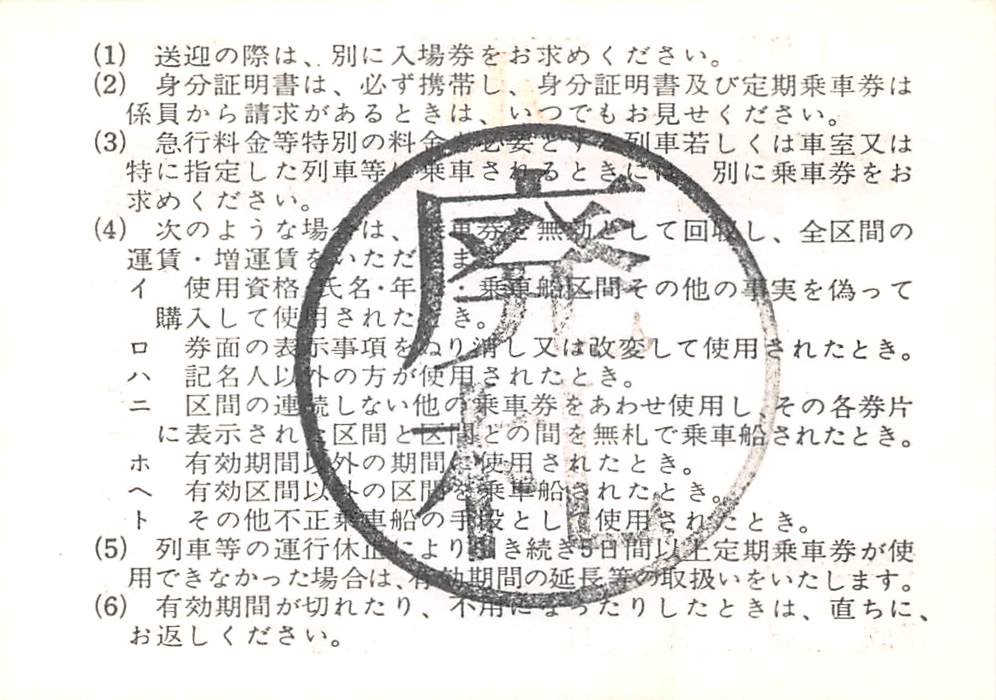 (1) 送迎の際は、別に入場券をお求めください。
(2) 身分証明書は、必ず携帯し、身分証明書及び定期乗車券は
係員から請求があるときは、いつでもお見せください。
(3) 急行料金等特別の料金を必要とする列車若しくは車室又は
特に指定した列車等に乗車されるときには、別に乗車券をお
求めください。
(4) 次のような場合は、乗車券を無効として回収し、全区間の
運賃・増運賃をいただきます。
イ 使用資格・氏名・年齢・乗車船区間その他の事実を偽って
購入して使用されたとき。
ロ 券面の表示事項をぬり消し又は改変して使用されたとき。
ハ 記名人以外の方が使用されたとき。
ニ 区間の連続しない他の乗車券をあわせ使用し、その各券片
に表示された区間と区間との間を無札で乗車船されたとき。
ホ 有効期間以外の期間に使用されたとき。
ヘ 有効区間以外の区間を乗車船されたとき。
ト その他不正乗車船の手段として使用されたとき。
(5) 列車等の運行休止により引き続き5日間以上定期乗車券が使
用できなかった場合は、有効期間の延長等の取扱いをいたします。
(6) 有効期間が切れたり、不用になったりしたときは、直ちに、
お返しください。
廃札